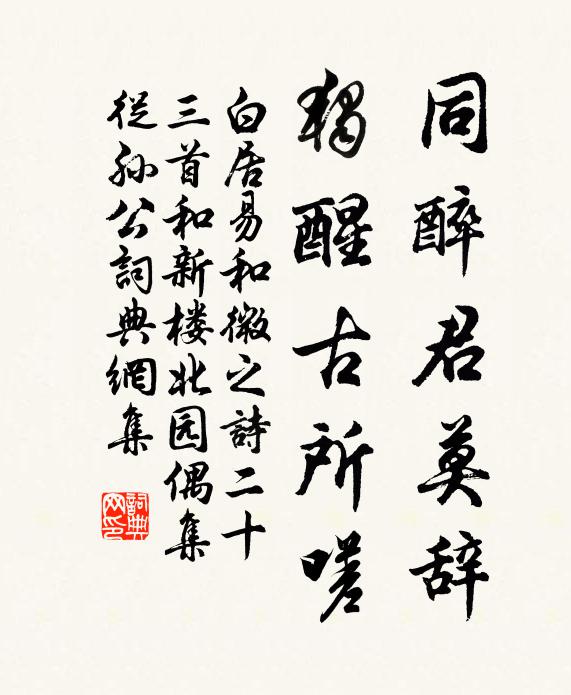 同醉君莫辞
独醒古所嗟
白居易和微之詩二十
三首和新楼北园偶集
従孙公詞典網集
詞典
网印